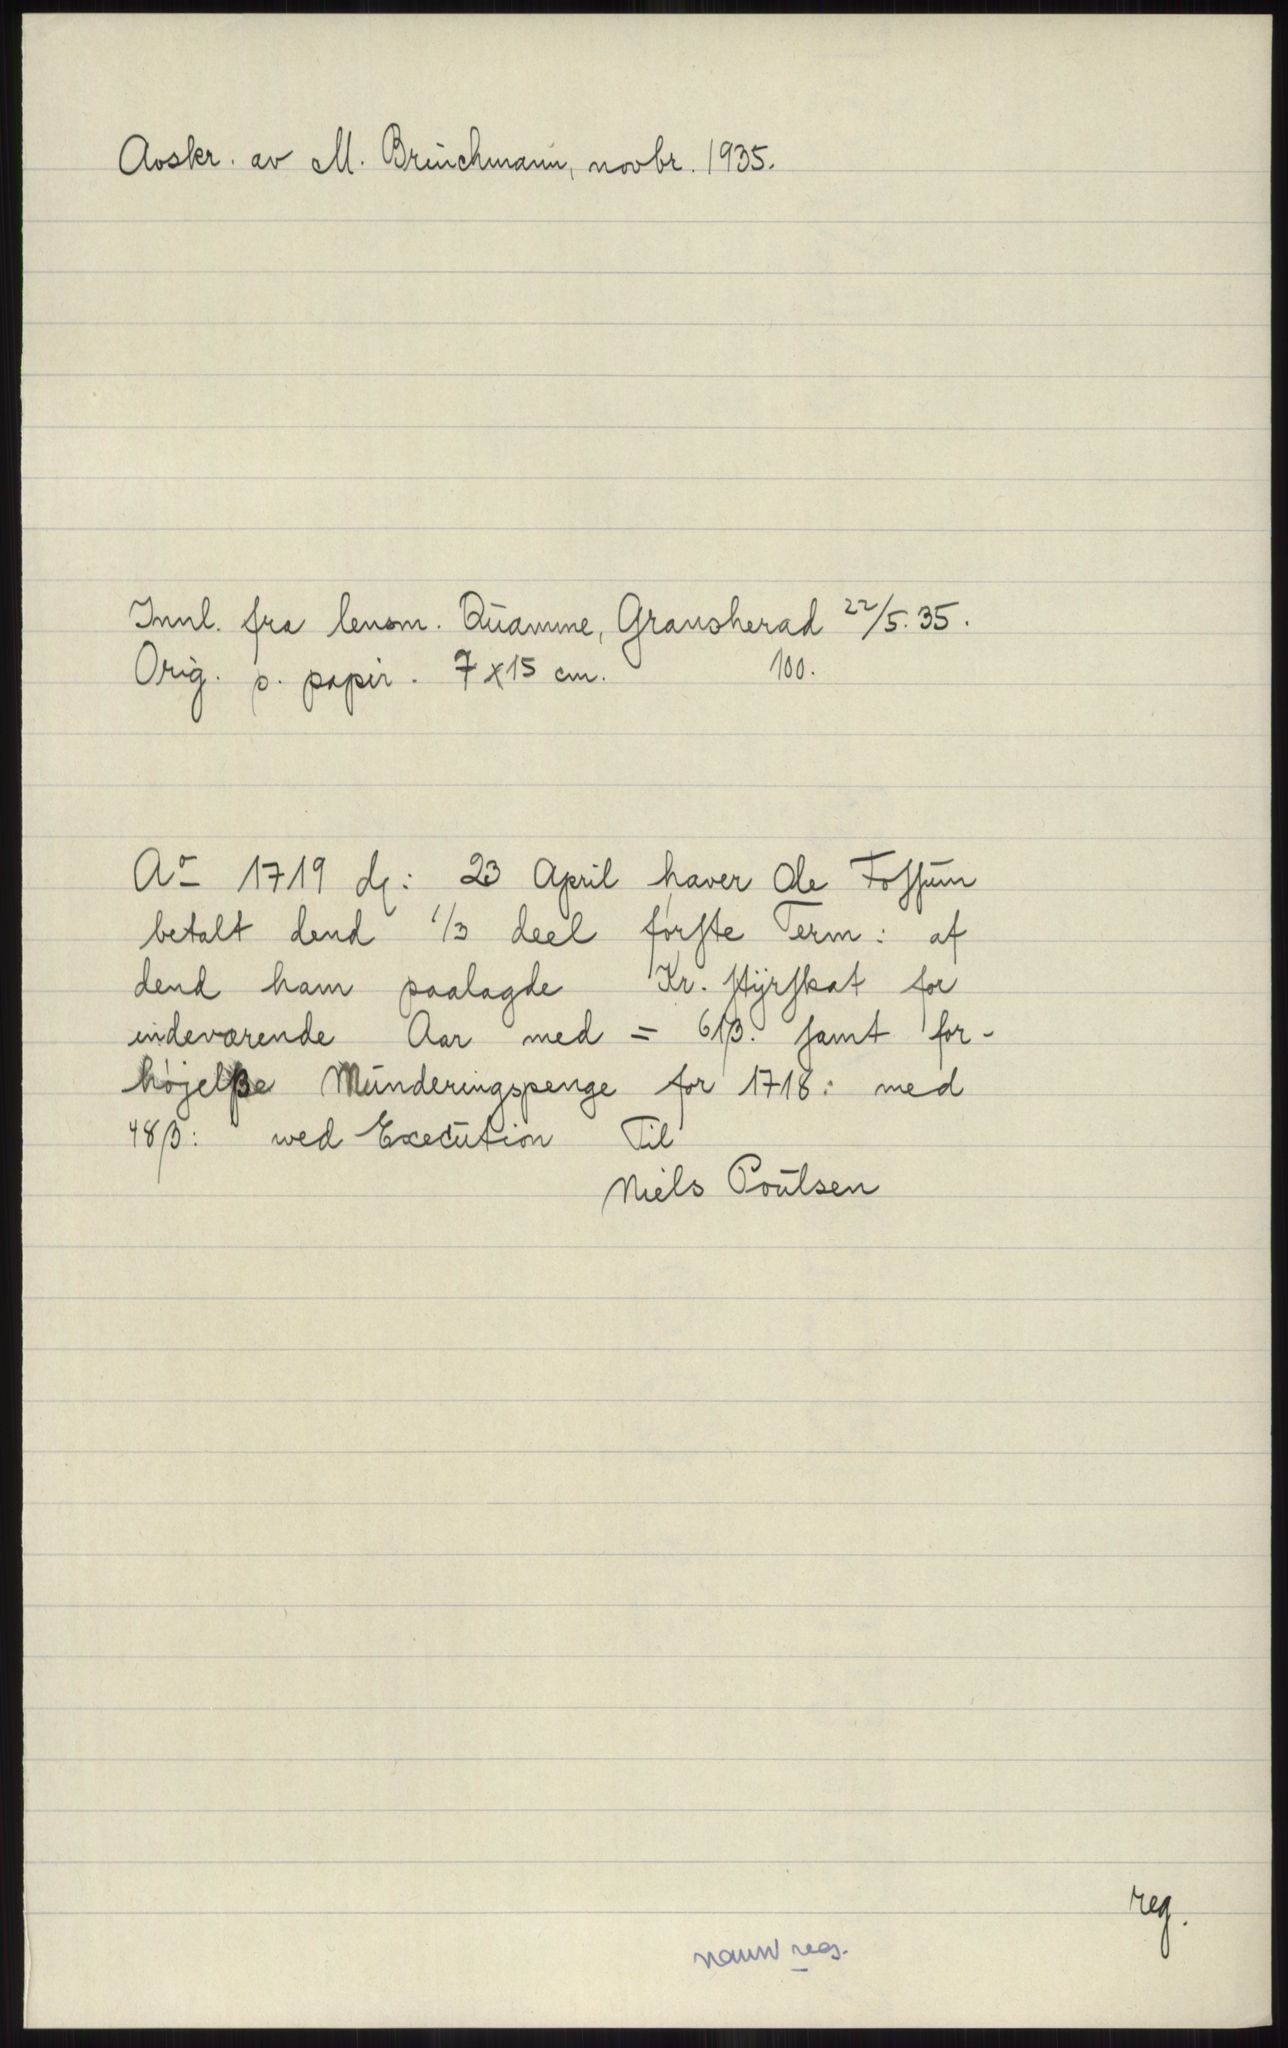 Avskr. av M. Brinchmann, novbr. 1935.
Innl. fra lensm. Quamme, Gransherad 22/5. 35.
Orig. p. papir. 7 x 15 cm. 100.
Ao 1719 d: 23 April haver Ole Fossum
betalt dend 1/3 deel første Term: af
dend ham paalagde Kr. styrskat for
indeværende Aar med = 61β. samt for-
højelße Munderingspenge for 1718: med
48β: wed Execution Til
Niels Poulsen
reg.
navn reg.